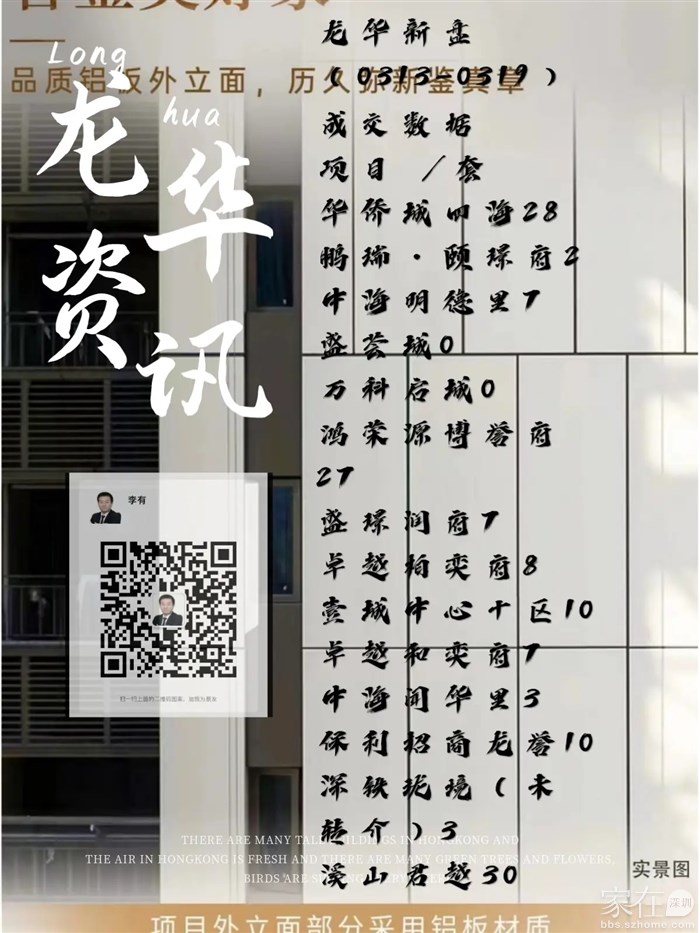 品质铝板外立面，历久弥新鉴真章
Long
hua
龙华
资讯
龙华新盘
（0313-0319）
成交数据
项目 /套
华侨城四海28
鹏瑞·颐璟府2
中海明德里7
盛荟城0
万科启城0
鸿荣源博誉府
27
盛璟润府7
卓越柏奕府8
壹城中心十区10
卓越和奕府7
中海闻华里3
保利招商龙誉10
深铁珑境（未
转介）3
溪山君越30
李有
扫一扫上面的二维码图案，加我为朋友
THERE ARE MANY TALL BUILDINGS IN HONGKONG AND
THE AIR IN HONGKONG IS FRESH AND THERE ARE MANY GREEN TREES AND FLOWERS,
BIRDS ARE
实景图
家在深圳
bbs.szhome.com
项目外立面部分采用铝板材质